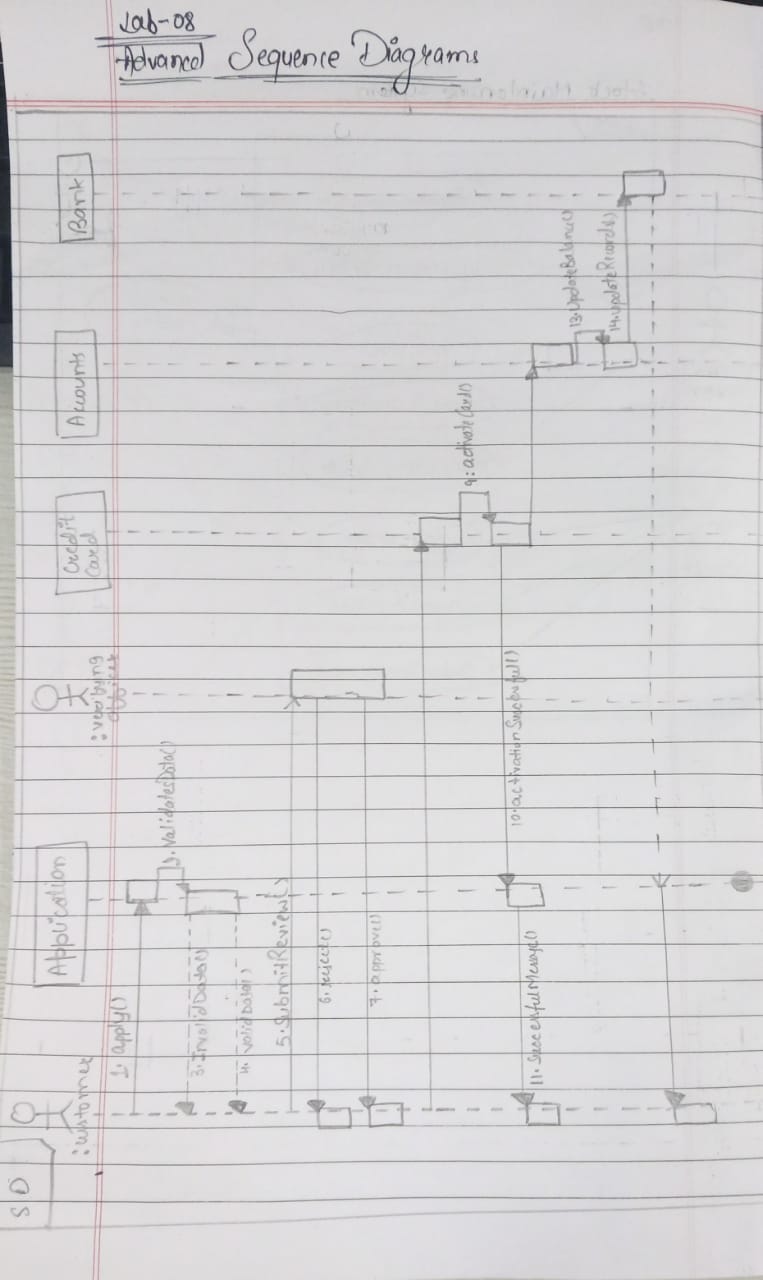 Lab-08
Advanced Sequence Diagrams
SD
:customer
Application
:verifying officer
Credit Card
Accounts
Bank
1. apply()
2. ValidatesData()
3. InvalidData()
4. validData()
5. SubmitReview()
6. reject()
7. approve()
9: activateCard()
10. activationSuccessful()
11. SuccessfulMessage()
13. UpdateBalance()
14. UpdateRecords()